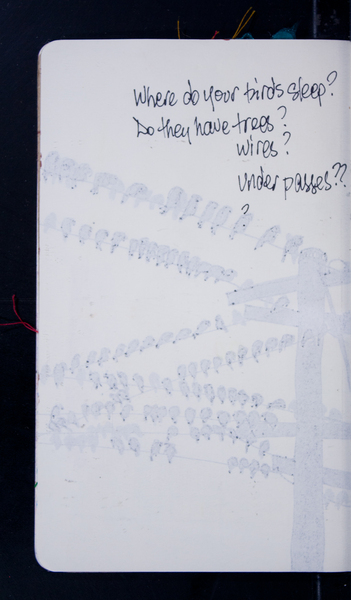 Where do your birds sleep?
Do they have trees?
wires?
under passes??
?